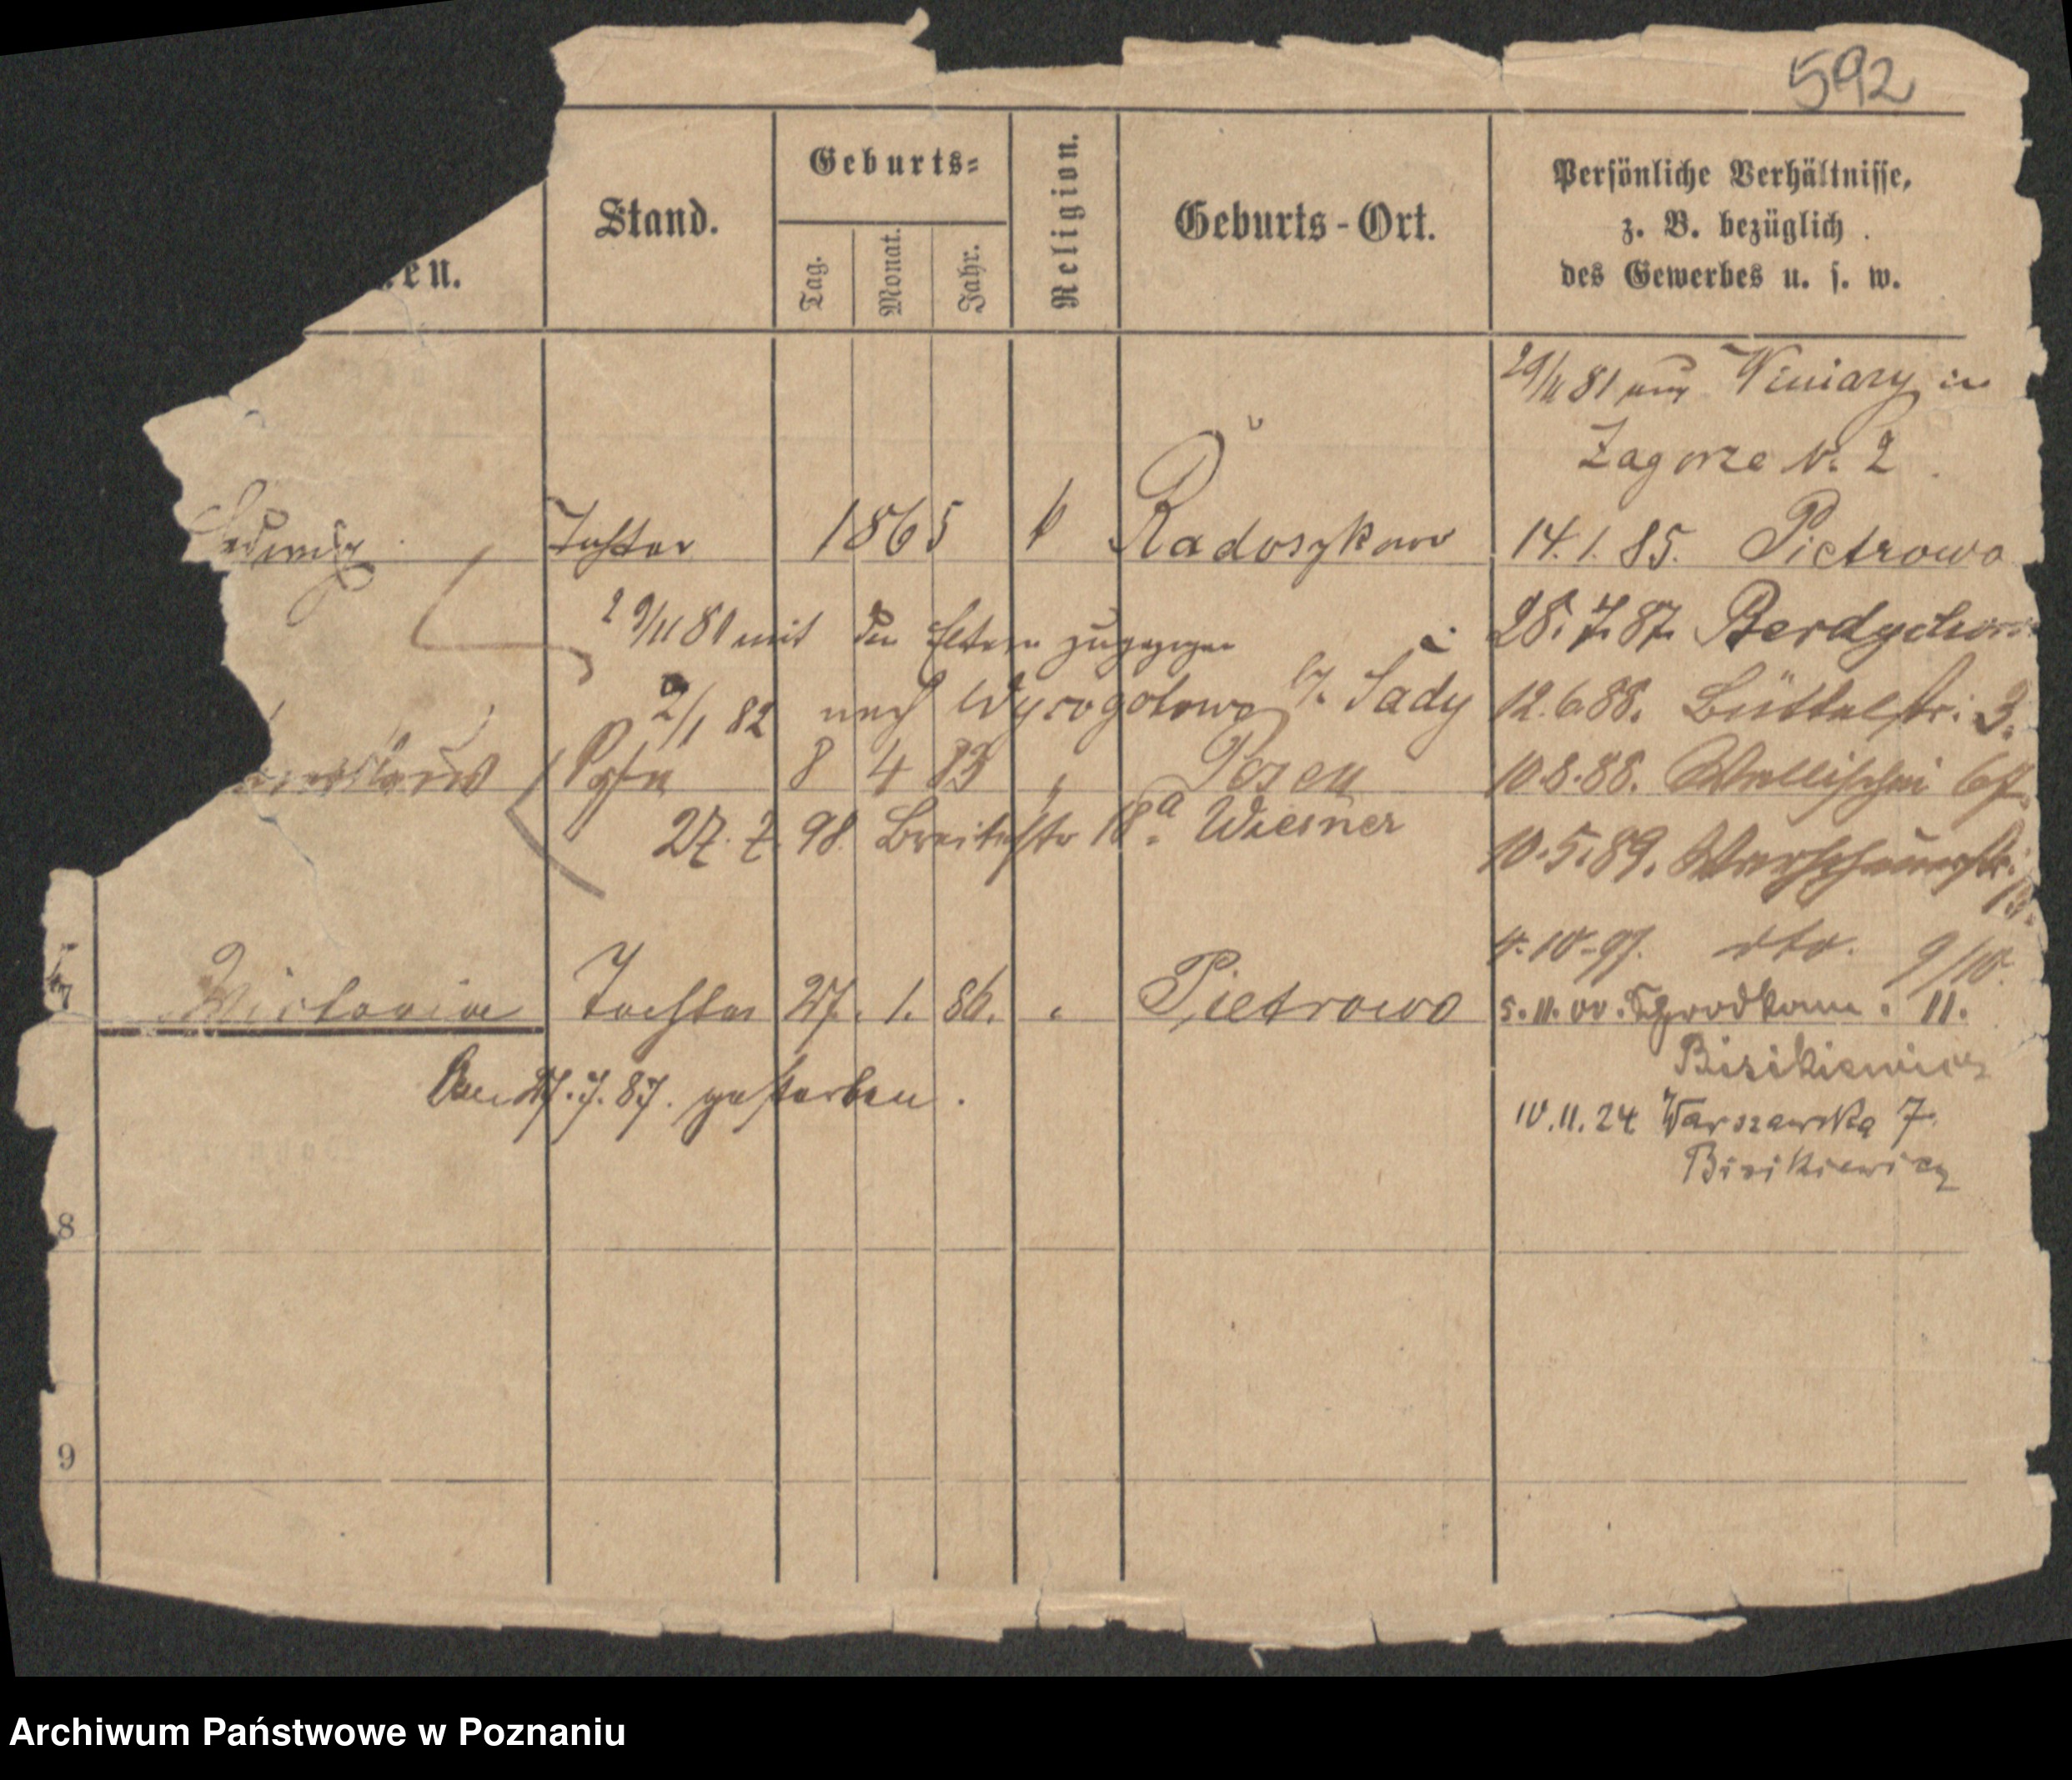 592
en.
Stand.
Geburts-
Tag.
Monat.
Jahr.
Religion.
Geburts-Ort.
Persönliche Verhältnisse,
z. B. bezüglich
des Gewerbes u. s. w.
29/11 81 aus Winiary in
Zagorze N. 2
Hedwig Tochter 1865 k Radoszkowo 14.1.85. Pietrowo
29/11 81 mit den Eltern zugezogen
28.7.87. Berdychowo
2/1 82 nach Wysogotowo b/. Sady
12.6.88. Büttelstr: 3.
Sohn 8 4 83 " Posen
10.8.88. Wallischei 67.
27.7.98. Breitestr 18a. Wiesner
10.5.89. Warschauerstr: 13.
4.10.97. dto. 9/10.
7 Victoria Tochter 27. 1. 86. " Pietrowo
5.11.00. Schrodkam. 11.
Am 27.7.87. gestorben.
Bisikiewicz
10.11.24 Warszawska 7.
Bisikiewicz
8
9
Archiwum Państwowe w Poznaniu